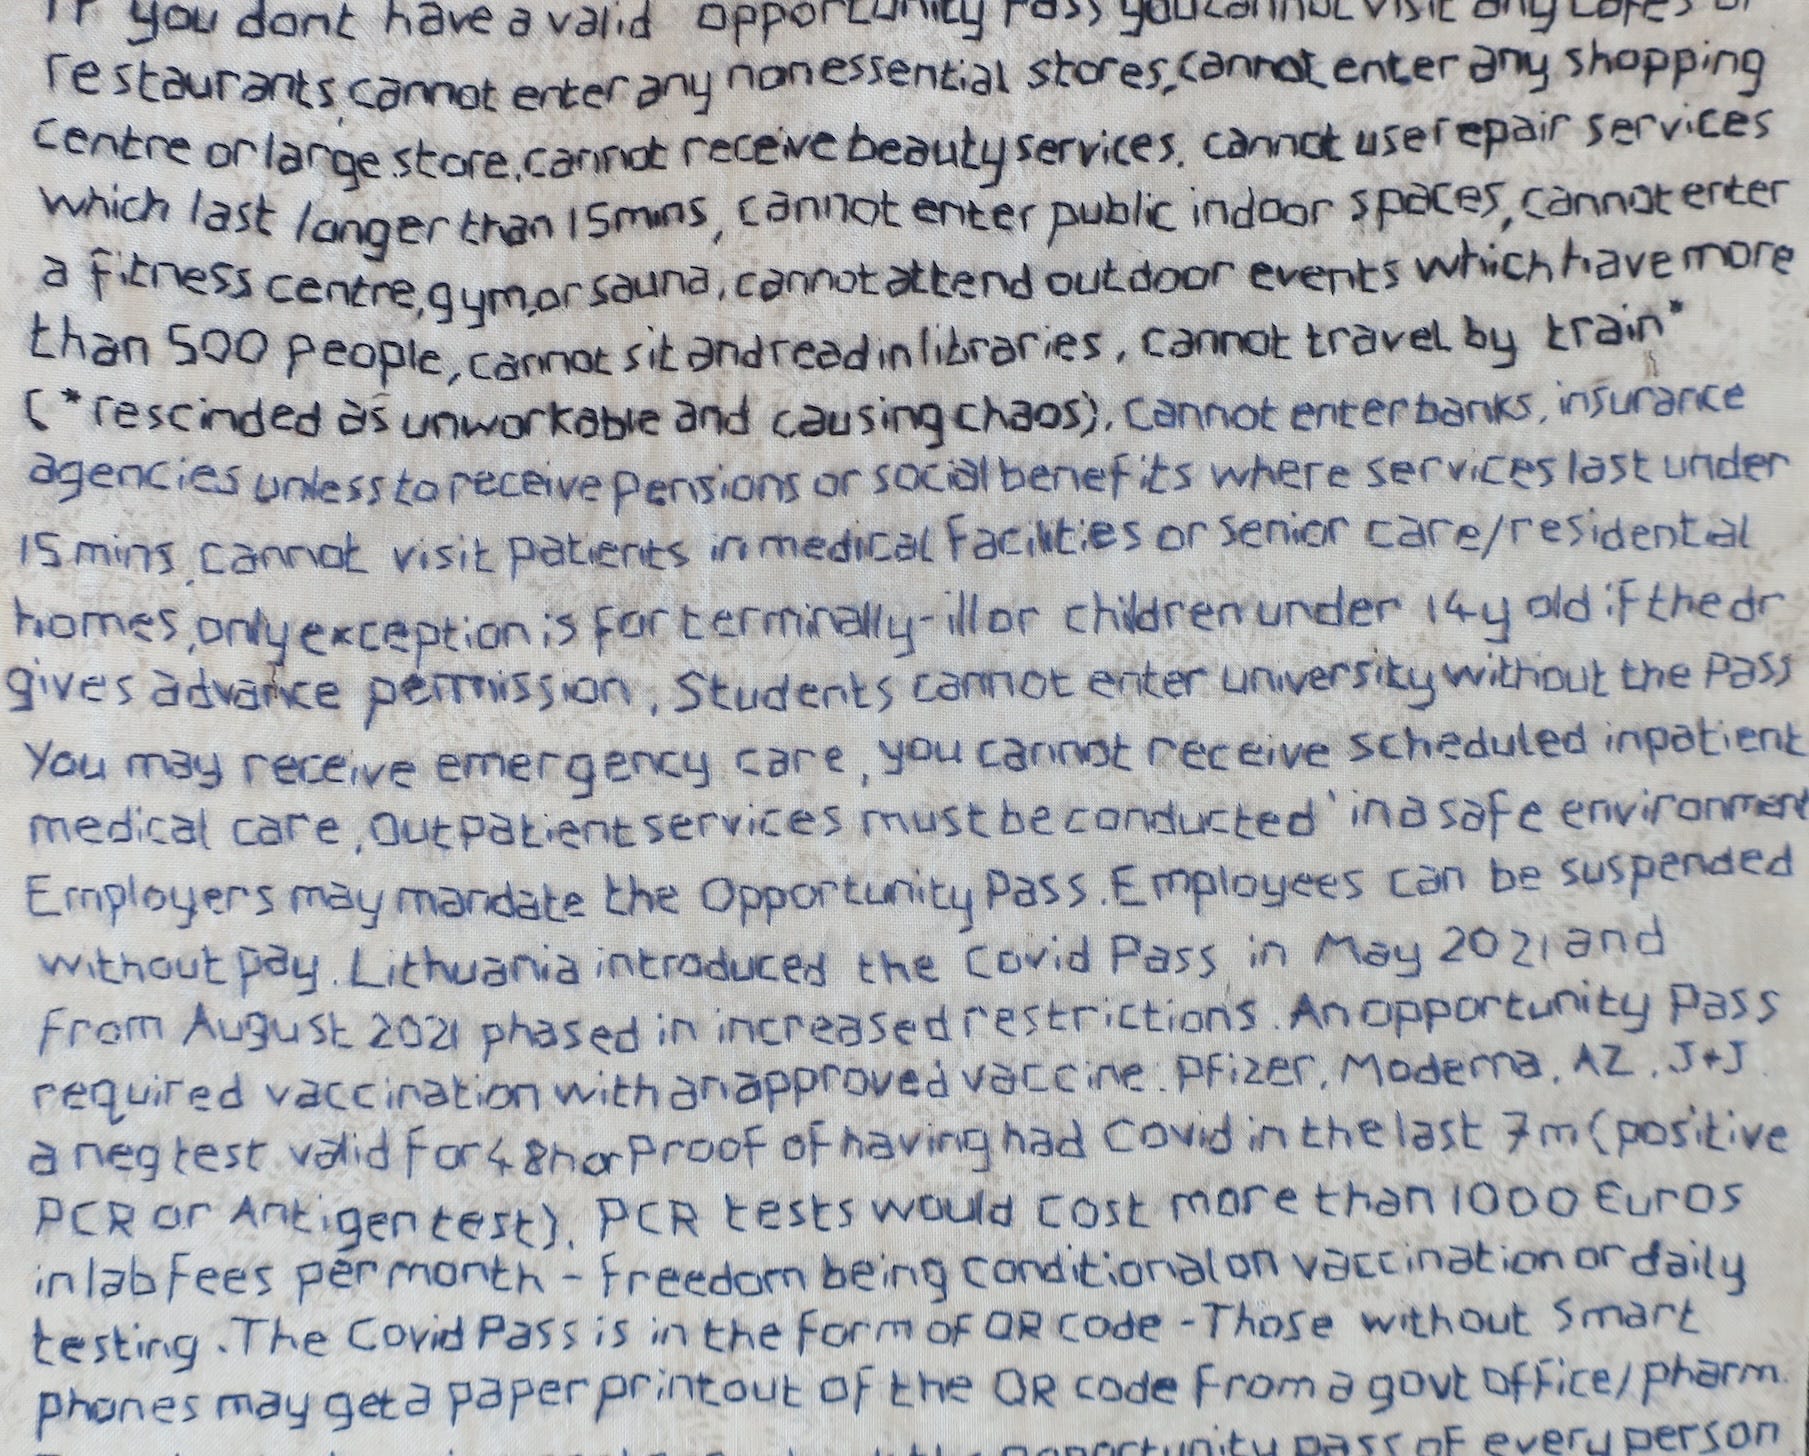 If you dont have a valid opportunity Pass you cannot visit any cafes or
restaurants, cannot enter any nonessential stores, cannot enter any shopping
centre or large store, cannot receive beauty services, cannot use repair services
which last longer than 15mins, cannot enter public indoor spaces, cannot enter
a fitness centre, gym, or sauna, cannot attend outdoor events which have more
than 500 people, cannot sit and read in libraries, cannot travel by train*
(*rescinded as unworkable and causing chaos), cannot enter banks, insurance
agencies unless to receive pensions or social benefits where services last under
15 mins, cannot visit patients in medical facilities or senior care/residential
homes, only exception is for terminally-ill or children under 14y old if the dr
gives advance permission, Students cannot enter university without the Pass
You may receive emergency care, you cannot receive scheduled inpatient
medical care, Outpatient services must be conducted 'in a safe environment
Employers may mandate the Opportunity Pass. Employees can be suspended
without pay. Lithuania introduced the Covid Pass in May 2021 and
from August 2021 phased in increased restrictions. An opportunity Pass
required vaccination with an approved vaccine: Pfizer, Moderna, AZ, J+J.
a neg test valid for 48h or Proof of having had Covid in the last 7m (positive
PCR or Antigen test). PCR tests would cost more than 1000 Euros
in lab fees per month - freedom being conditional on vaccination or daily
testing. The Covid Pass is in the form of QR code - Those without Smart
phones may get a paper printout of the QR code from a govt office/pharm.
opportunity pass of every person